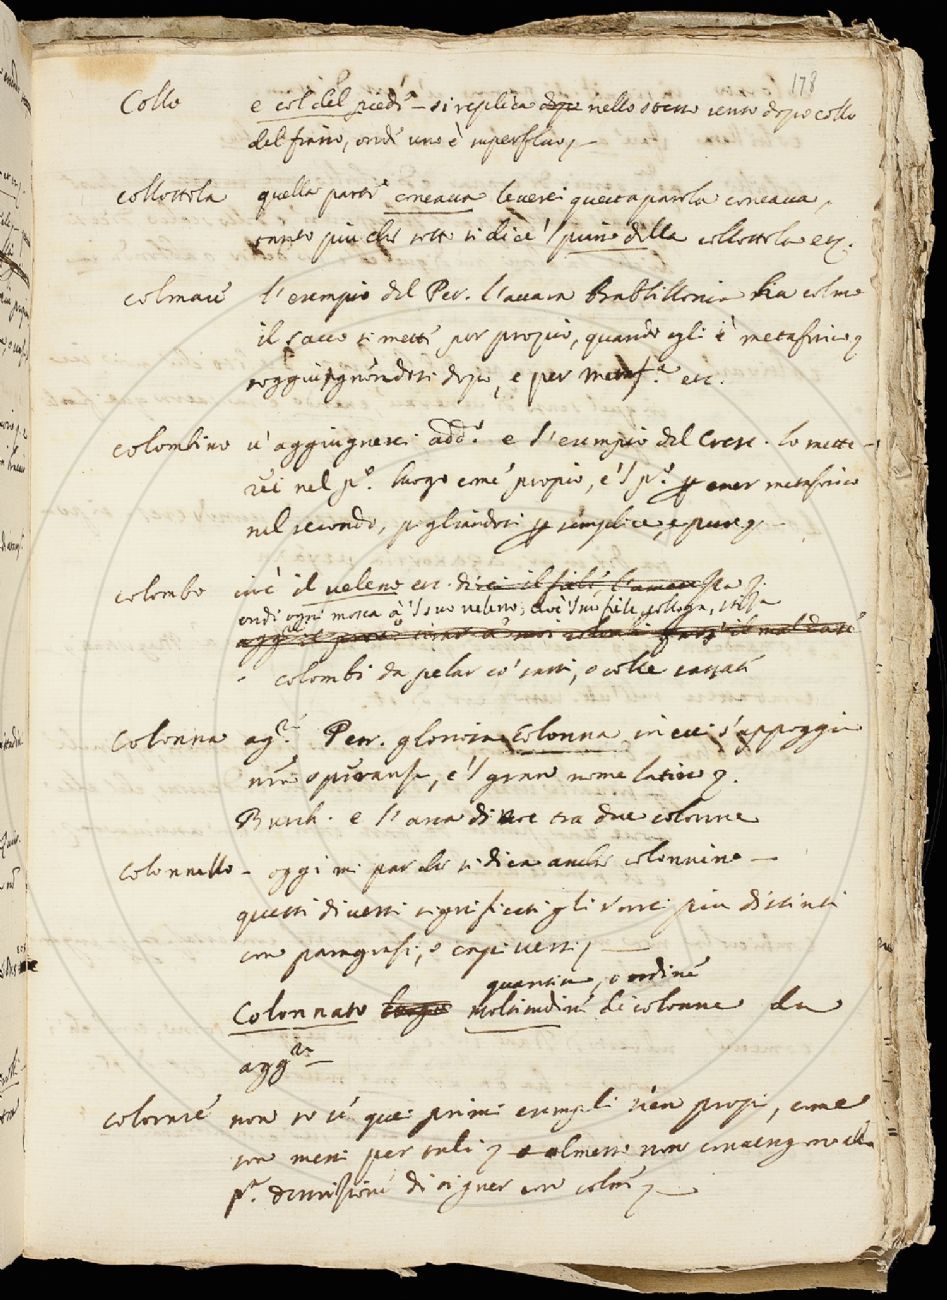 178
Collo e col del piedi – si replica dopo nello stesso senso dopo collo
del fiasco, onde uno è superfluo,
collottola quella parte concava leverei questa parola concava,
tanto più che sotto si dice 'l puino della collottola etc.
colmare l'esempio del Pet. l'avara Babillonia ha colmo
il sacco si mette per proprio, quando egli è metaforico,
soggiugnendosi dopo, e per metaf.ª etc.
colombino v'aggiugnerei add.º e l'esempio del Cresc. lo mette-
rei nel p.º luogo come proprio, e 'l p.º p esser metaforico
nel secondo, pigliandosi p semplice, e puro,
colombo cioè il veleno etc. direi il fiele
onde ogni mosca à 'l suo veleno, cioè 'l suo fiele, collera, stizza
colombi da pelar co' sassi, o colle sassate
Colonna ag.ª Petr. gloriosa Colonna in cui s'appoggia
nostra speranza, e 'l gran nome latino,
Burch. e l'arca di Noe tra due colonne
Colonnello – oggi mi par che si dica anche colonnino –
questi diversi significati gli vorrei più distinti
con paragrafi, o capiversi,
quantità, o ordine
Colonnato luogo moltitudine di colonne da
agg.ra
colorare non so se quei primi esempli sien propri, come
son messi per tali, o almeno non convengono alla
p.ª definizione di signer con colori,